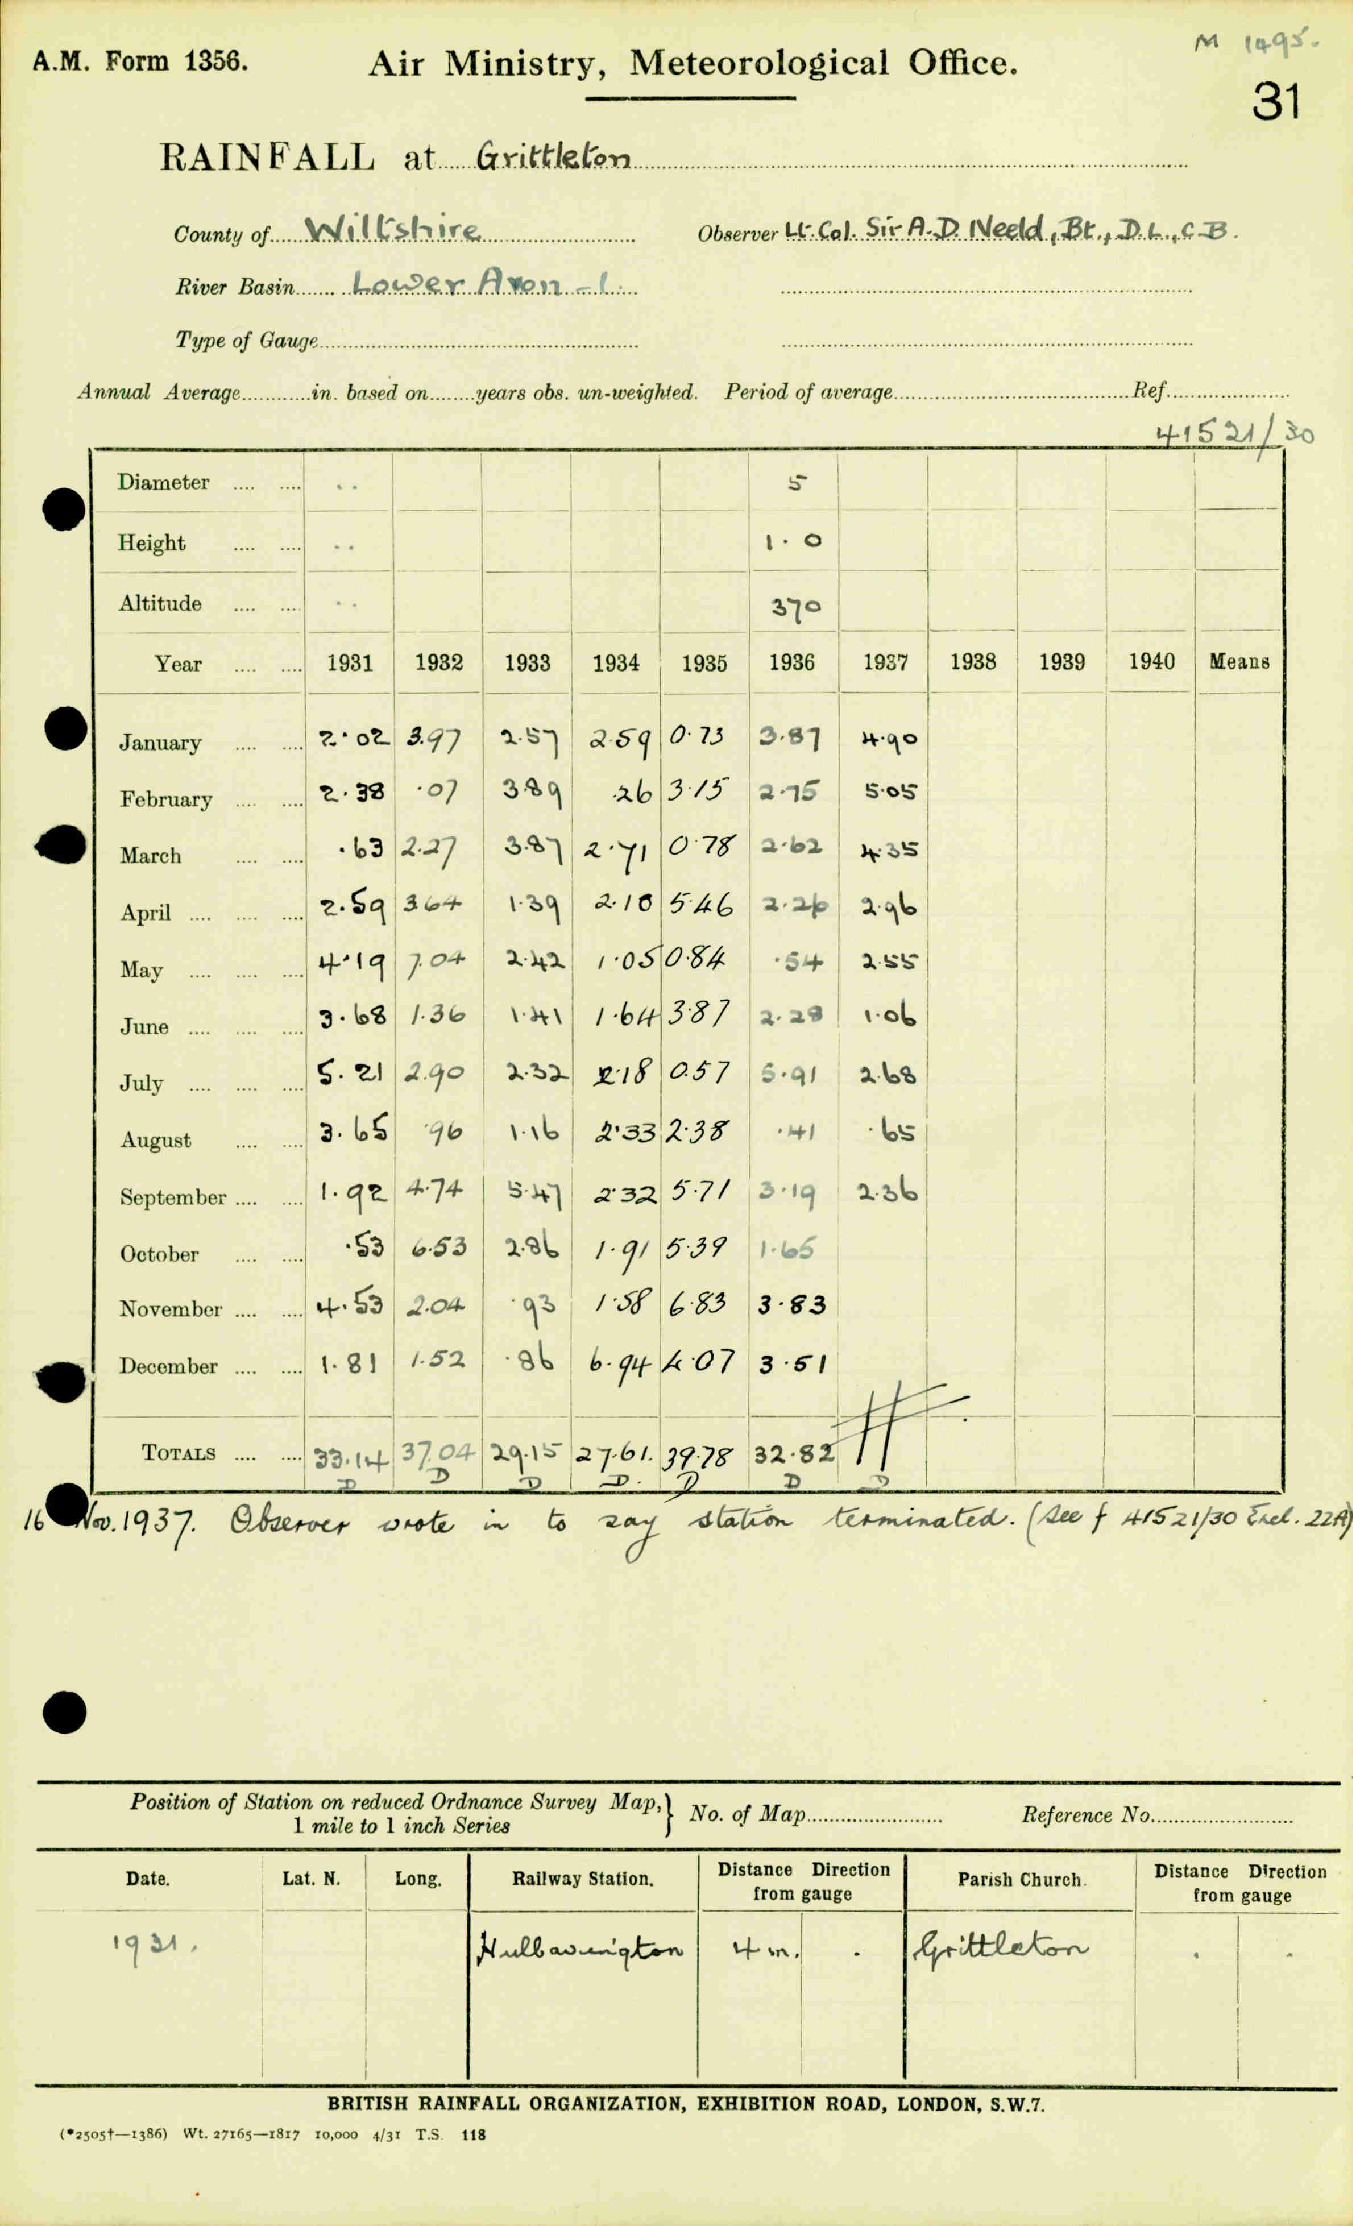 M 1495.
A.M. Form 1356. Air Ministry, Meteorological Office.
31
RAINFALL at Grittleton
County of Wiltshire Observer Lt. Col. Sir A.D. Neeld, Bt., D.L., C.B.
River Basin Lower Avon - 1.
Type of Gauge
Annual Average in. based on years obs. un-weighted. Period of average Ref.
41521/30
Diameter .. 5
Height .. 1.0
Altitude .. 370
Year 1931 1932 1933 1934 1935 1936 1937 1938 1939 1940 Means
January 2.02 3.97 2.57 2.59 0.73 3.87 4.90
February 2.38 .07 3.89 .26 3.15 2.75 5.05
March .63 2.27 3.87 2.71 0.78 2.62 4.35
April 2.59 3.64 1.39 2.10 5.46 2.26 2.96
May 4.19 7.04 2.42 1.05 0.84 .54 2.55
June 3.68 1.36 1.41 1.64 3.87 2.28 1.06
July 5.21 2.90 2.32 2.18 0.57 5.91 2.68
August 3.65 .96 1.16 2.33 2.38 .41 .65
September 1.92 4.74 5.47 2.32 5.71 3.19 2.36
October .53 6.53 2.86 1.91 5.39 1.65
November 4.53 2.04 .93 1.58 6.83 3.83
December 1.81 1.52 .86 6.94 4.07 3.51
TOTALS 33.14 37.04 29.15 27.61. 39.78 32.82
D D D D. D D D
16 Nov. 1937. Observer wrote in to say station terminated. (See f 41521/30 Encl. 22A)
Position of Station on reduced Ordnance Survey Map, } No. of Map Reference No.
1 mile to 1 inch Series
Date. Lat. N. Long. Railway Station. Distance Direction from gauge Parish Church. Distance Direction from gauge
1931. Hullavington 4 m. . Grittleton . .
BRITISH RAINFALL ORGANIZATION, EXHIBITION ROAD, LONDON, S.W.7.
(*2505†—1386) Wt. 27165—1817 10,000 4/31 T.S. 118